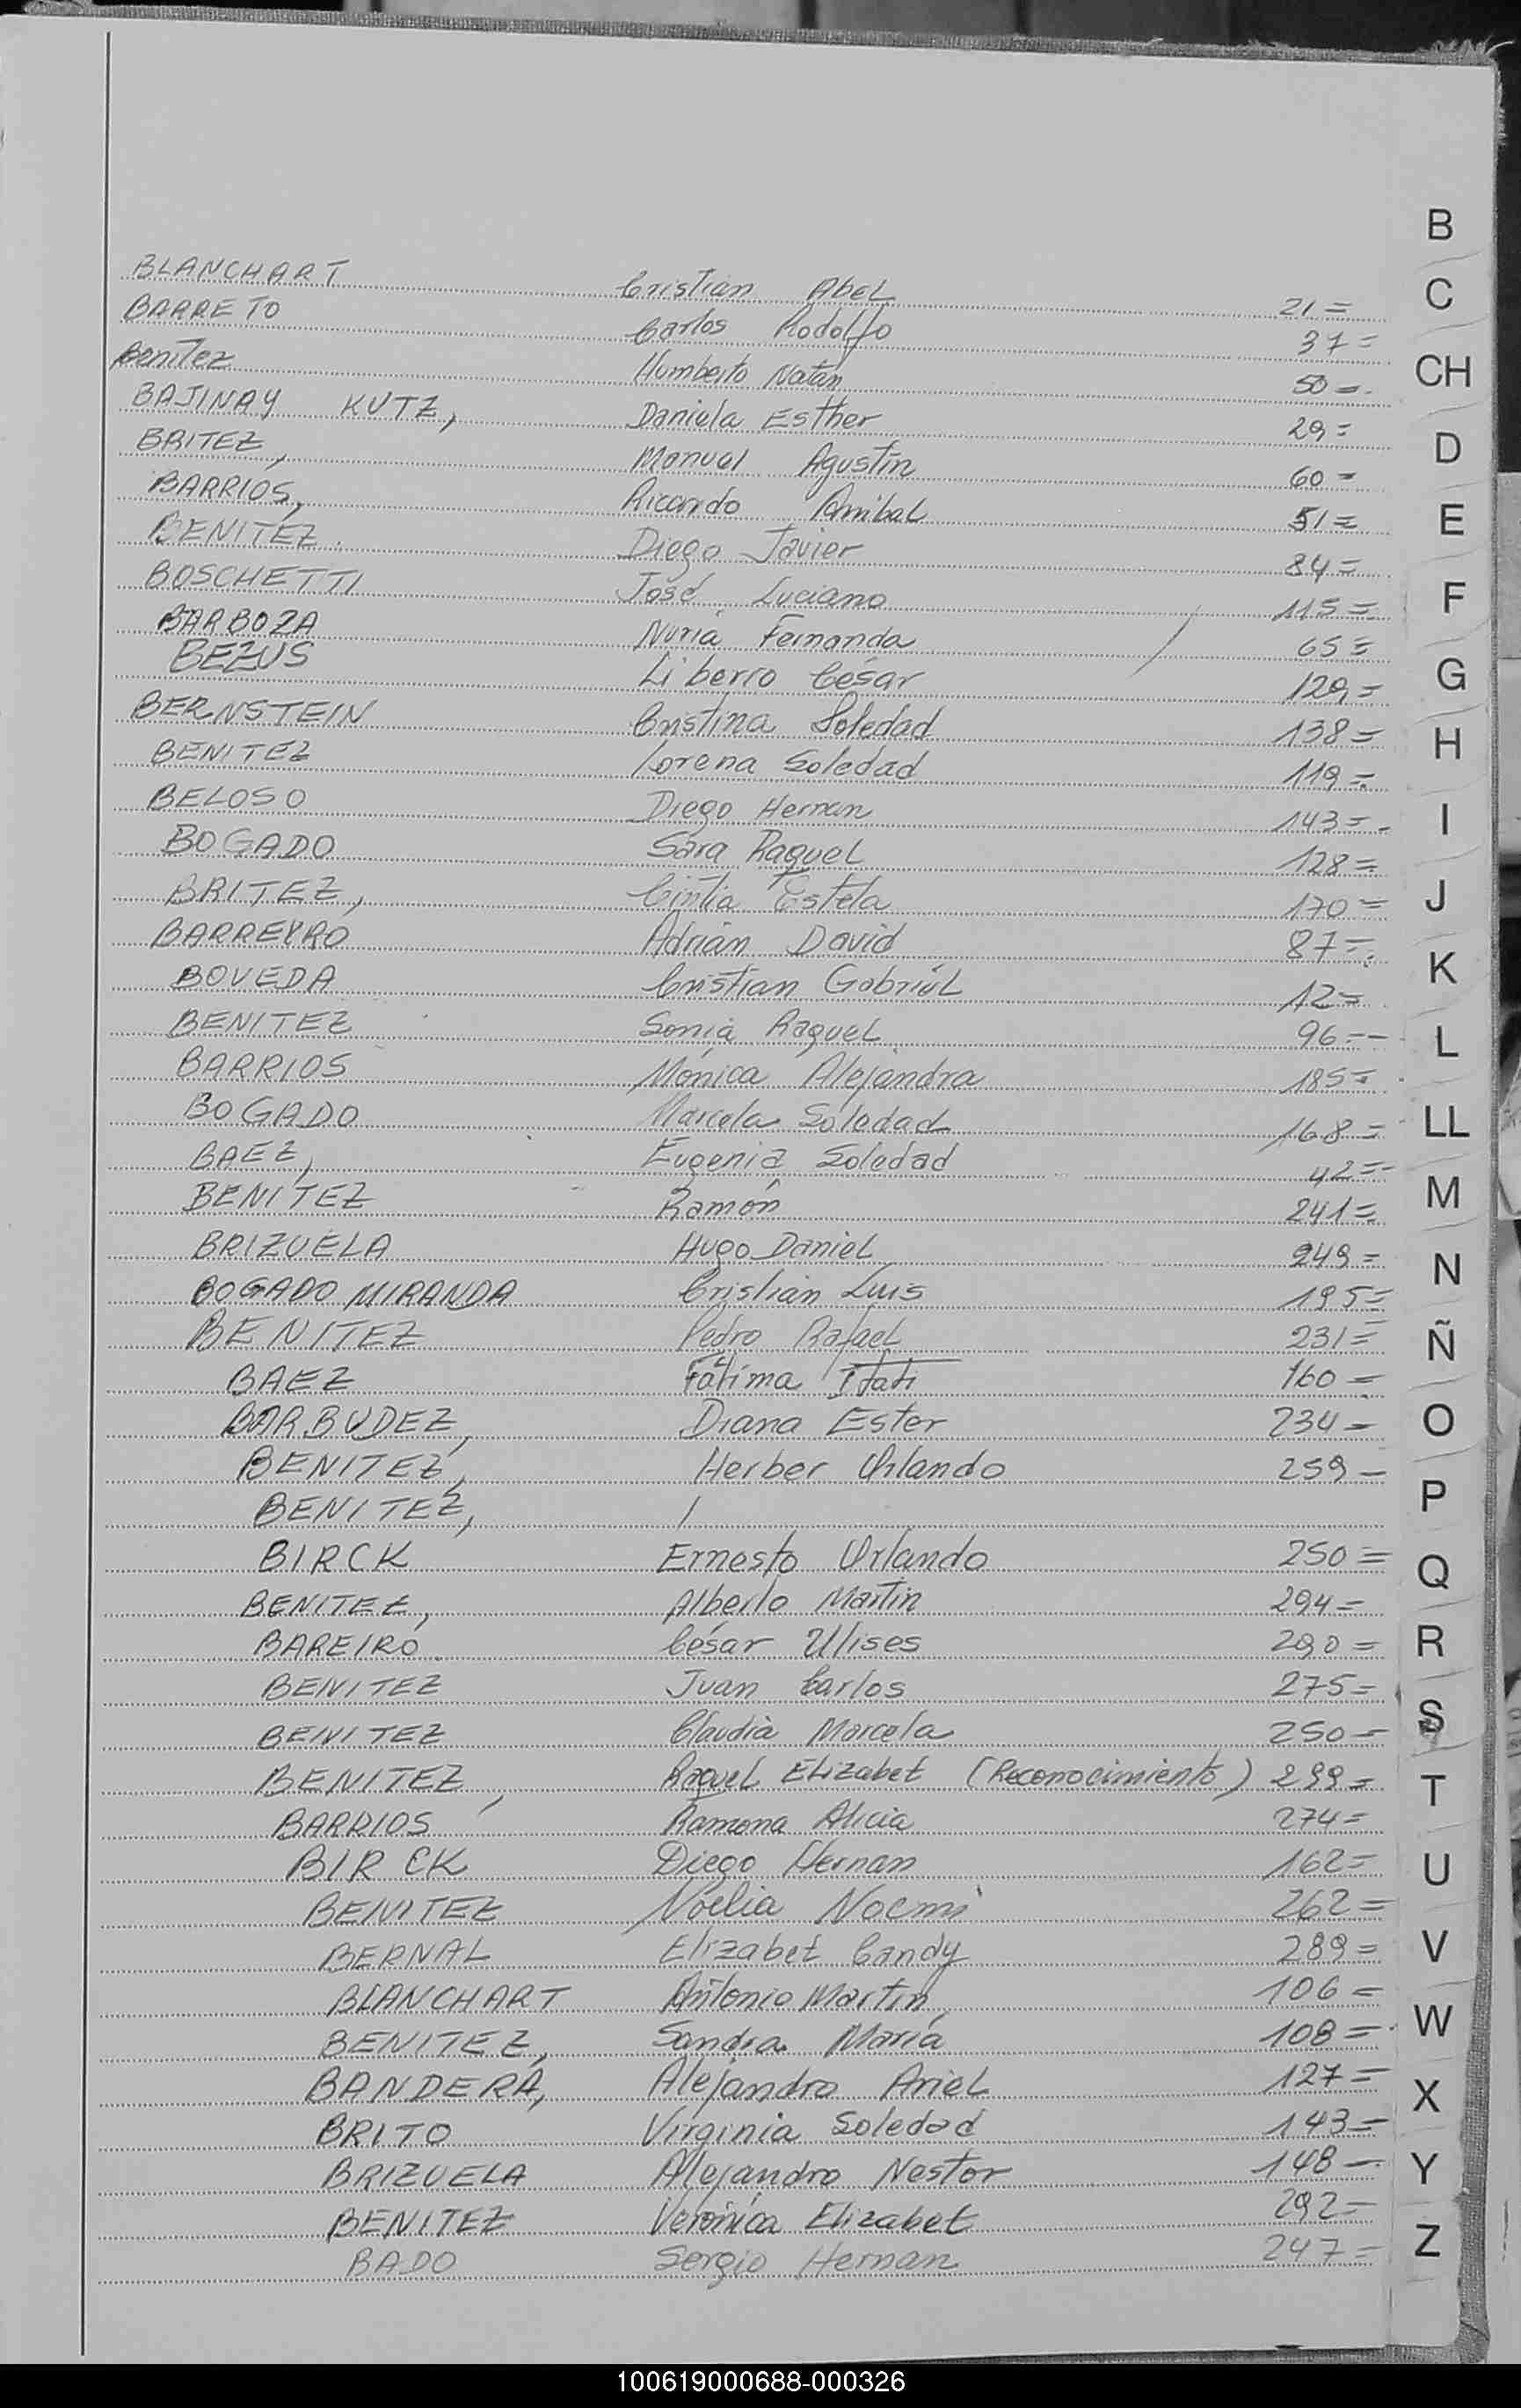 B
C
CH
D
E
F
G
H
I
J
K
L
LL
M
N
Ñ
O
P
Q
R
S
T
U
V
W
X
Y
Z
BLANCHART Cristian Abel 21=
BARRETO Carlos Rodolfo 37=
Benítez Humberto Natán 50=
BAJINAY KUTZ, Daniela Esther 29=
BRITEZ, Manuel Agustín 60=
BARRIOS, Ricardo Anibal 51=
BENITEZ Diego Javier 84=
BOSCHETTI José Luciano 115=
BARBOZA Nuria Fernanda / 65=
BEZUS Liberro César 129=
BERNSTEIN Cristina Soledad 138=
BENITEZ Lorena Soledad 119=
BELOSO Diego Hernan 143=
BOGADO Sara Raquel 128=
BRITEZ, Cintia Estela 170=
BARREYRO Adrián David 87=
BOVEDA Cristian Gabriel 12=
BENITEZ Sonia Raquel 96=
BARRIOS Mónica Alejandra 185=
BOGADO Marcela Soledad 168=
BAEZ, Eugenia Soledad 42=
BENITEZ Ramón 241=
BRIZUELA Hugo Daniel 249=
BOGADO MIRANDA Cristian Luis 195=
BENITEZ Pedro Rafael 231=
BAEZ Fátima Itati 160=
BARBUDEZ, Diana Ester 234=
BENITEZ, Herber Orlando 259=
BENITEZ, /
BIRCK Ernesto Orlando 250=
BENITEZ, Alberto Martin 294=
BAREIRO César Ulises 290=
BENITEZ Juan Carlos 275=
BENITEZ Claudia Marcela 250=
BENITEZ, Raquel Elizabet (Reconocimiento) 299=
BARRIOS Ramona Alicia 274=
BIRCK Diego Hernan 162=
BENITEZ Noelia Noemi 262=
BERNAL Elizabet Candy 289=
BLANCHART Antonio Martin 106=
BENITEZ, Sandra María 108=
BANDERA, Alejandro Ariel 127=
BRITO Virginia Soledad 143=
BRIZUELA Alejandro Nestor 148=
BENITEZ Verónica Elizabet 292=
BADO Sergio Hernan 247=
100619000688-000326